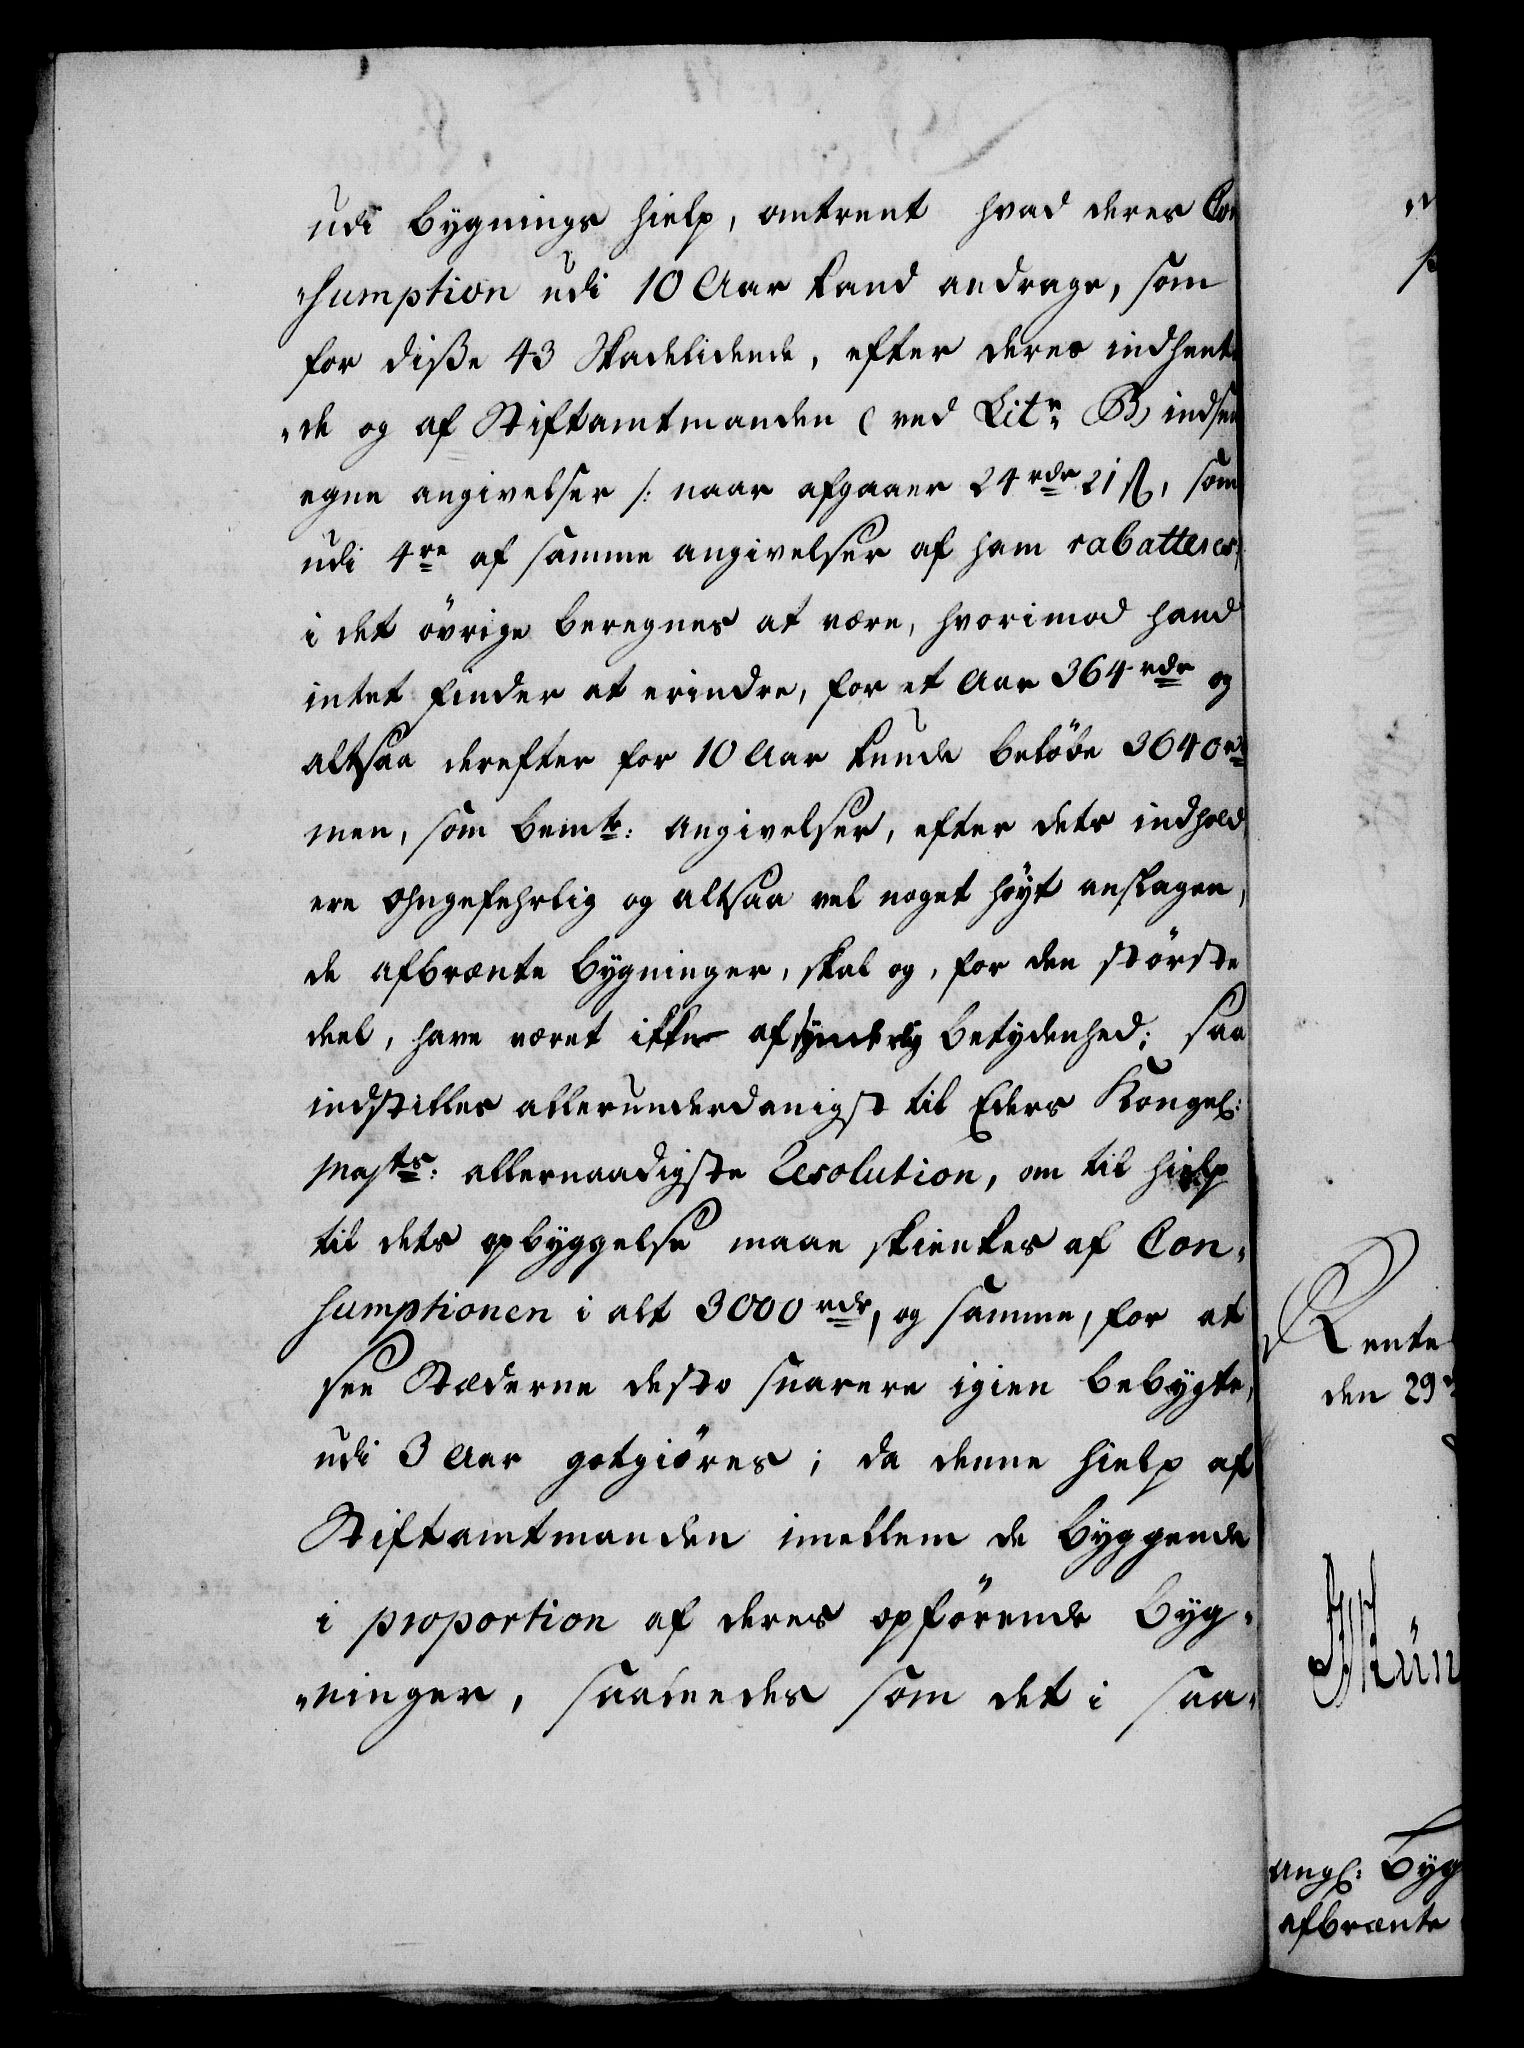 udi Bygnings hielp, omtrent hvad deres Con
sumption udi 10 Aar kand andrage, som
for diße 43 Skadelidende, efter deres indhente
„de og af Stiftamtmanden (ved Litr B) indsen
egne angivelser /: naar afgaaer 24 rdr 21 ß, som
udi 4re af samme angivelser af ham rabatteres,
i det övrige beregnes at være, hvorimod hand
intet finder at erindre, for et Aar 364 rdr og
altsaa derefter for 10 Aar kunde belöbe 3640 rd
men, som bemte: Angivelser, efter dets indhold
ere ohngefehrlig og altsaa vel noget höyt anslagen,
de afbrænte Bygninger, skal og, for den störste
deel, have været ikke af synderlig betydenhed; saa
indstilles allerunderdanigst til Eders Kongel:
Majts: allernaadigste Resolution, om til hielp
til dets opbyggelse maae skienkes af Con„
sumptionen i alt 3000 rdr, og samme, for at
see Stæderne desto snarere igien bebygte,
udi 3 Aar gotgiöres; da denne hielp af
Stiftamtmanden imellem de byggende
i proportion af deres opförende Byg„
„ninger, saaledes som det i saa„
Rente
den 29
Mün
Angl: Byg
afbrænte